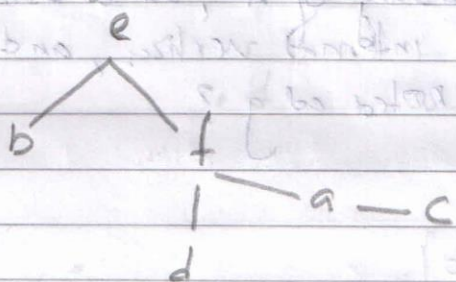 e
b f
a c
d